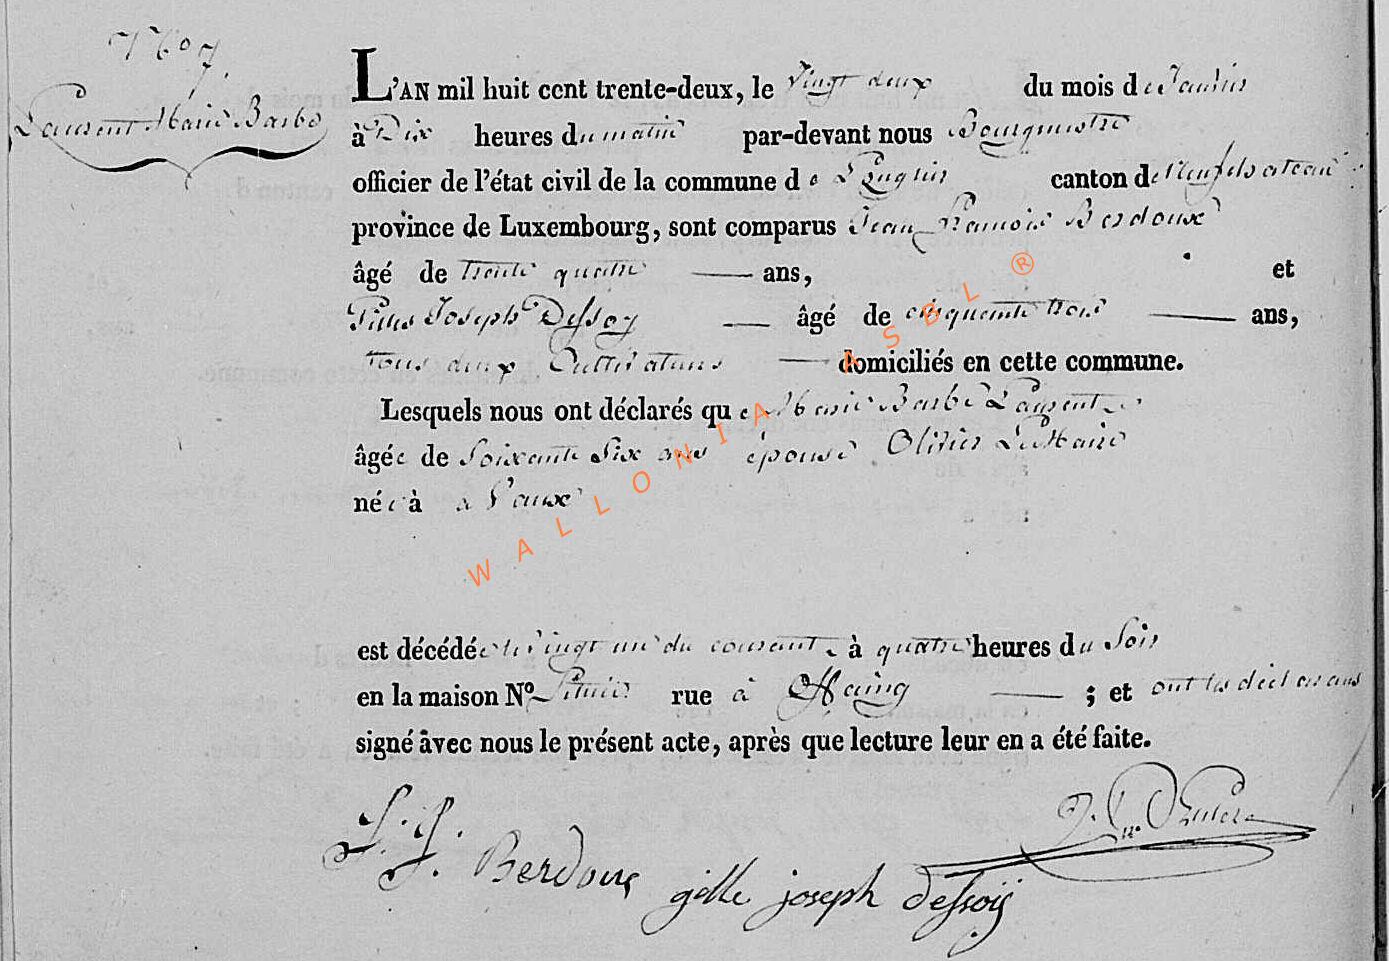 N° 7
Laurent Marie Barbe
L'AN mil huit cent trente-deux, le vingt deux du mois de Janvier
à Dix heures du matin par-devant nous Bourgmestre
officier de l'état civil de la commune de Longlier canton de Neufchateau
province de Luxembourg, sont comparus Jean François Berdoux
âgé de trente quatre ans, et
Gilles Joseph Dessoy âgé de cinquante trois ans,
tous deux Cultivateurs domiciliés en cette commune.
Lesquels nous ont déclarés que Marie Barbe Laurent
âgée de Soixante Six ans épouse Olivier LeMaire
née à a
est décédée le vingt un du courant à quatre heures du Soir
en la maison N° rue à Hamip ; et ont les déclarans
signé avec nous le présent acte, après que lecture leur en a été faite.
J. f. Berdoux gille joseph dessoij
WALLONIA ASBL ®